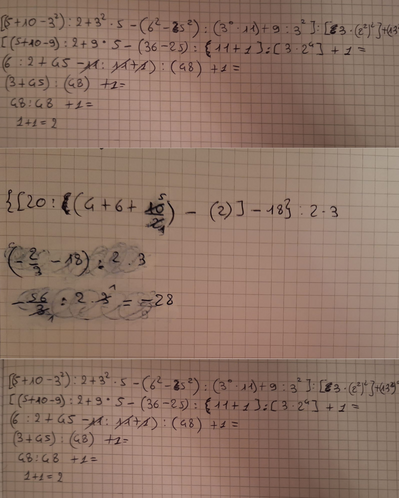 [5+10-3²):2+3²·5-(6²-5²):(3⁰·11)+9:3²]:[3·(2²)²]+(13⁰)
[(5+10-9):2+9·5-(36-25):(11+1]:[3·2⁴]+1=
(6:2+45-11:11+1):(48)+1=
(3+45):(48)+1=
48:48+1=
1+1=2
{[20:((4+6+10/2)-(2)]-18}:2·3
(-2/3-18):2·3
-56/3:2·3=-28
[5+10-3²):2+3²·5-(6²-5²):(3⁰·11)+9:3²]:[3·(2²)²]+(13⁰)
[(5+10-9):2+9·5-(36-25):(11+1]:[3·2⁴]+1=
(6:2+45-11:11+1):(48)+1=
(3+45):(48)+1=
48:48+1=
1+1=2